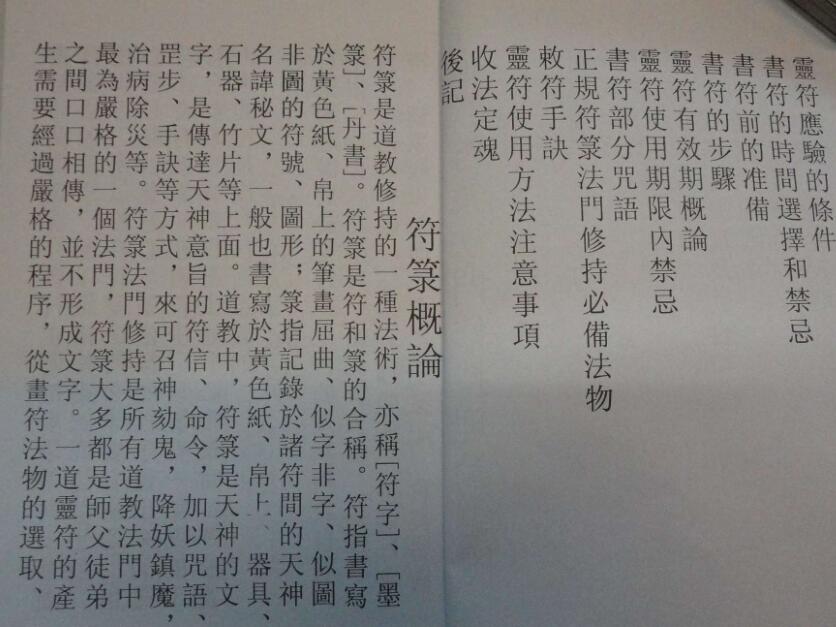 靈符應驗的條件
書符的時間選擇和禁忌
書符前的准備
書符的步驟
靈符有效期概論
靈符使用期限內禁忌
書符部分咒語
正規符箓法門修持必備法物
敕符手訣
靈符使用方法注意事項
收法定魂
後記
符箓概論
符箓是道教修持的一種法術，亦稱[符字]、[墨
箓]、[丹書]。符箓是符和箓的合稱。符指書寫
於黃色紙、帛上的筆畫屈曲、似字非字、似圖
非圖的符號、圖形；箓指記錄於諸符間的天神
名諱秘文，一般也書寫於黃色紙、帛上、器具、
石器、竹片等上面。道教中，符箓是天神的文
字，是傳達天神意旨的符信、命令，加以咒語、
罡步、手訣等方式，來可召神劾鬼，降妖鎮魔，
治病除災等。符箓法門修持是所有道教法門中
最為嚴格的一個法門，符箓大多都是師父徒弟
之間口口相傳，並不形成文字。一道靈符的產
生需要經過嚴格的程序，從畫符法物的選取、